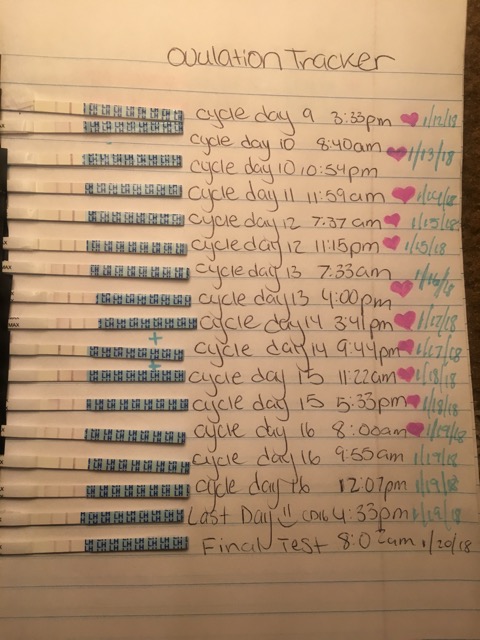 Ovulation Tracker
cycle day 9 3:33pm 1/12/18
cycle day 10 8:40am 1/13/18
cycle day 10 10:54pm
cycle day 11 11:59am 1/14/18
cycle day 12 7:37am 1/15/18
cycle day 12 11:15pm 1/15/18
cycle day 13 7:33am 1/16/18
cycle day 13 4:00pm
cycle day 14 3:41pm 1/17/18
+
cycle day 14 9:44pm 1/17/18
+
cycle day 15 11:22am 1/18/18
cycle day 15 5:33pm 1/18/18
cycle day 16 8:00am 1/19/18
cycle day 16 9:55am 1/19/18
cycle day 16 12:07pm 1/19/18
Last Day CD16 4:33pm 1/19/18
Final Test 1/20/18